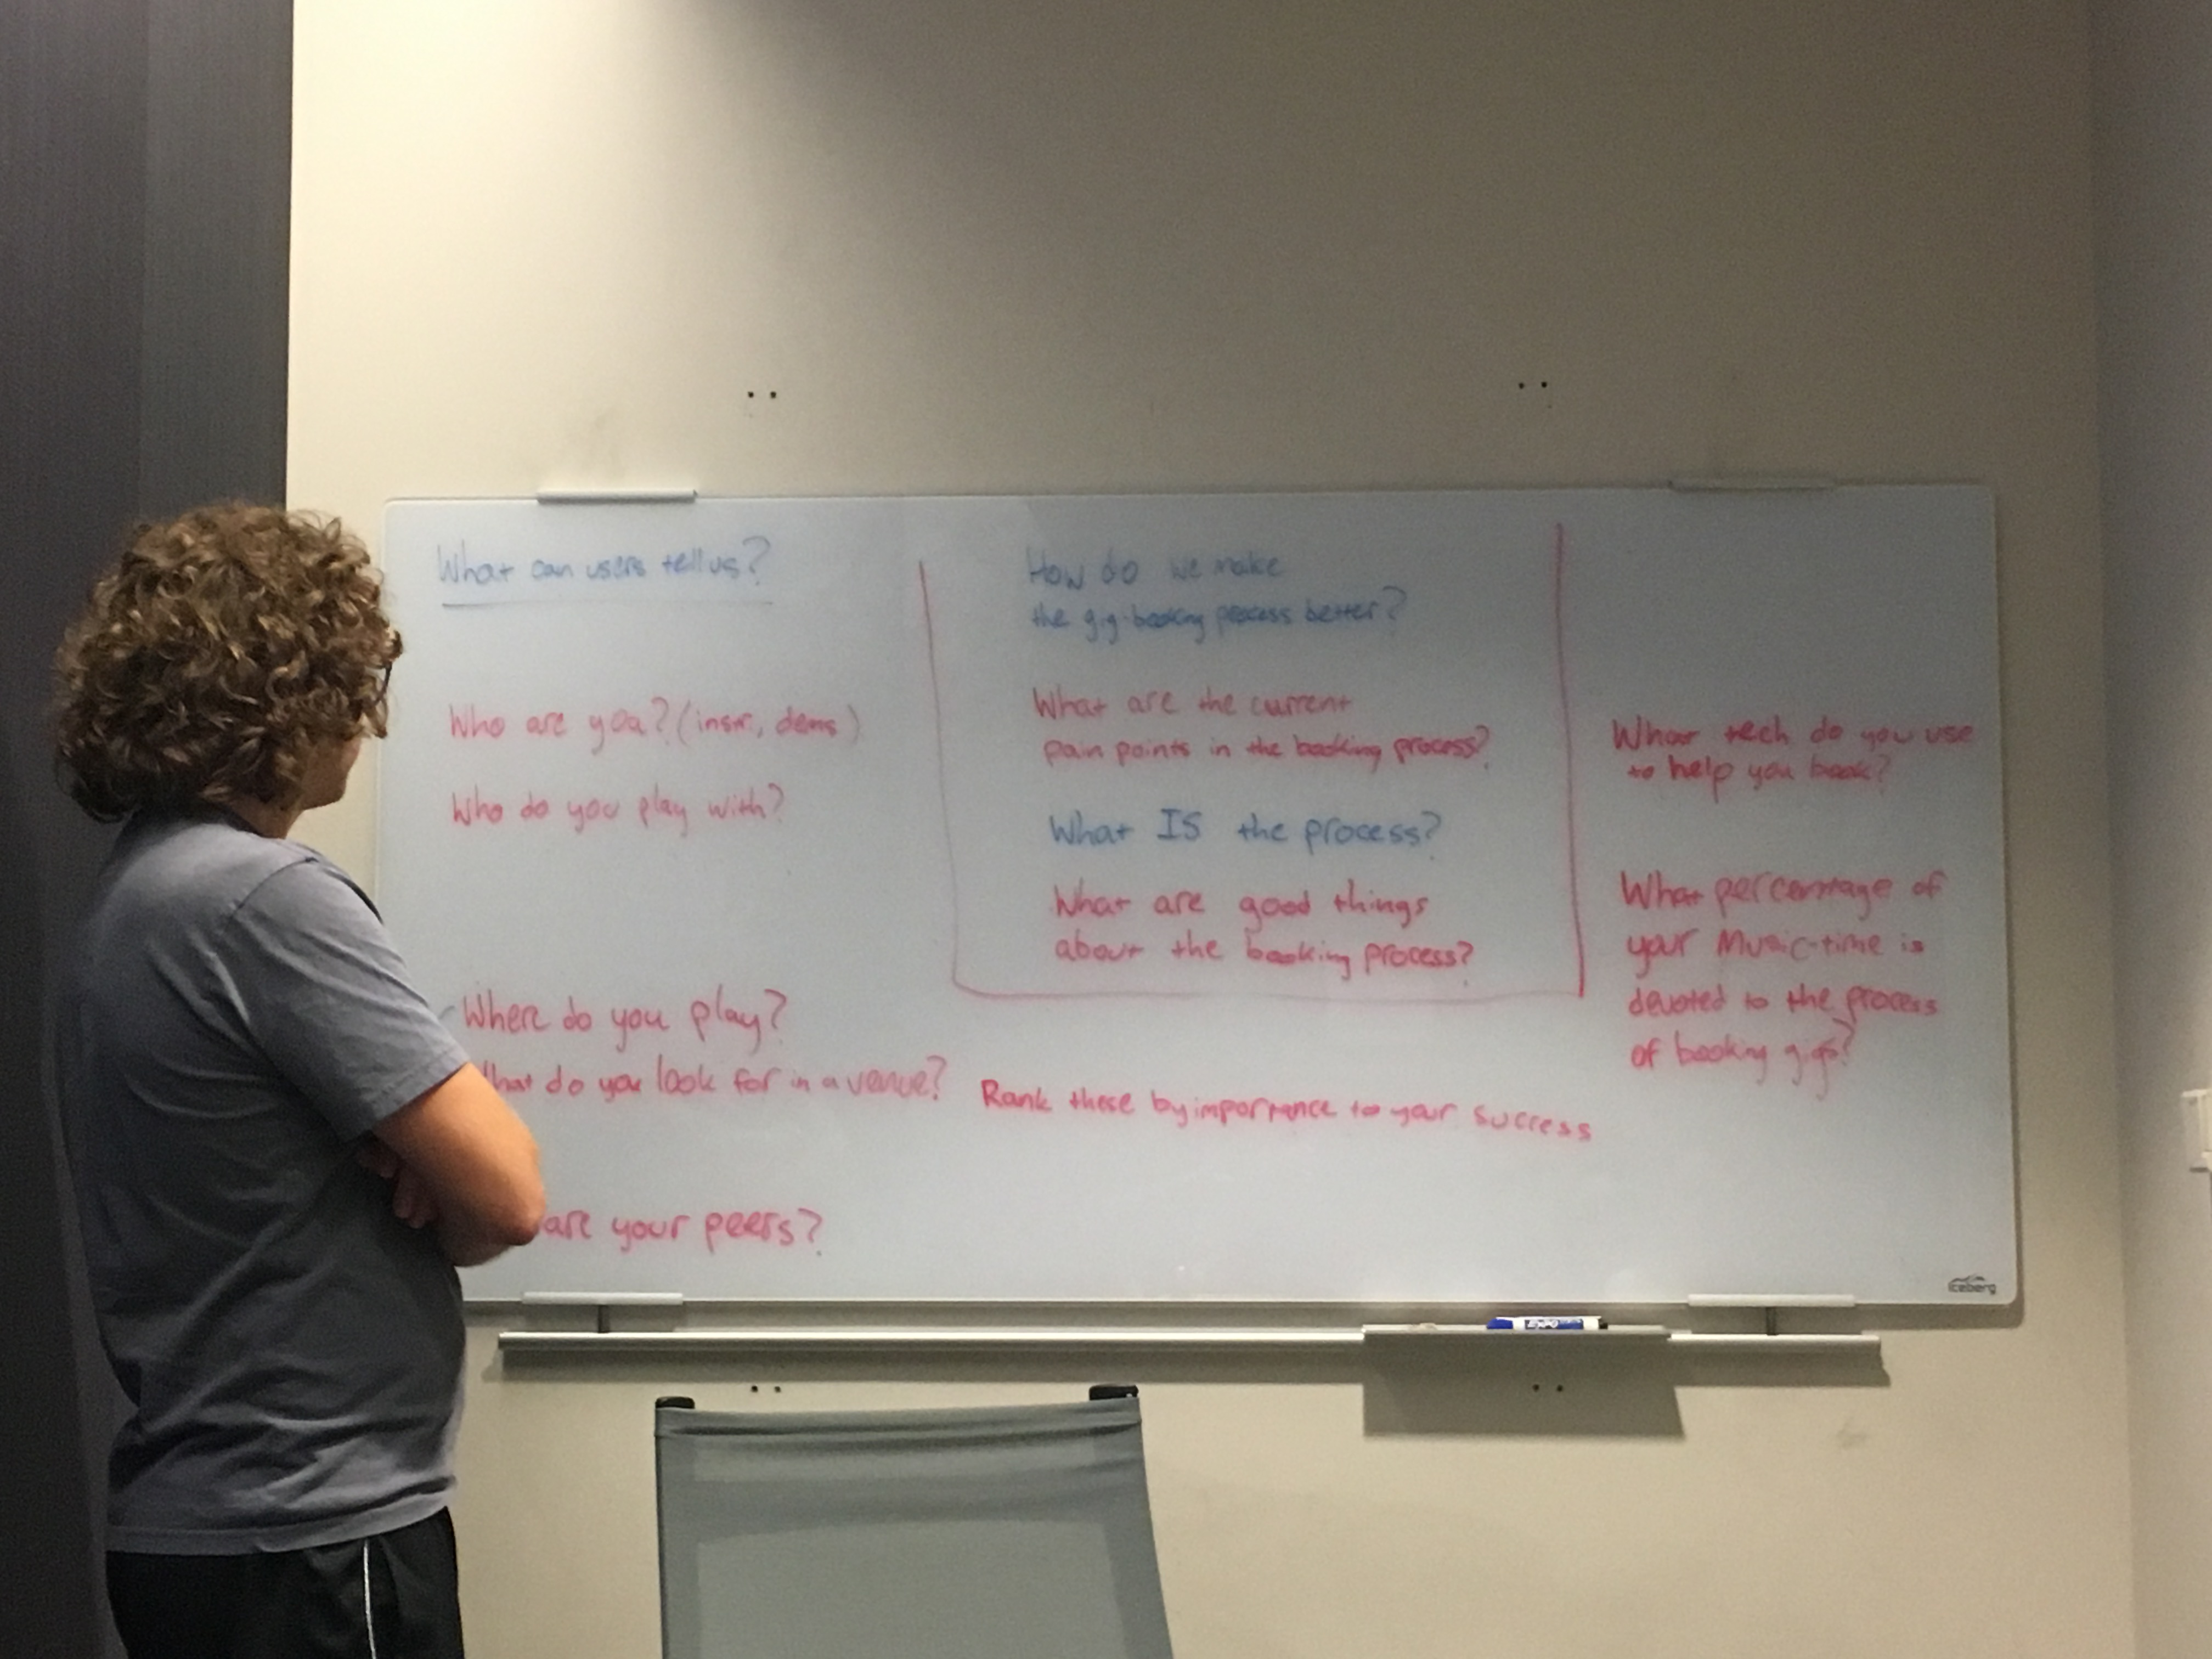 What can users tell us?
Who are you? (instr, dems)
Who do you play with?
Where do you play?
What do you look for in a venue?
are your peers?
How do we make
the gig-booking process better?
What are the current
pain points in the booking process?
What IS the process?
What are good things
about the booking process?
Rank these by importance to your success
What tech do you use
to help you book?
What percentage of
your Music-time is
devoted to the process
of booking gigs?
iceberg
EXPO